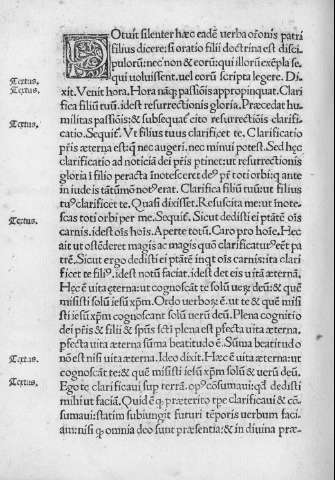 POtuit silenter hæc eadē verba or̄onis patri
filius dicere: si oratio filii doctrina est disci
pulorū: nec non & eorū: qui illorū exēpla se
qui uoluissent. uel eorū scripta legere. Di
Textus.
xit. Venit hora. Hora nāq; passiōis appropinquat. Clari
Textus.
fica filiū tuū. idest resurrectionis gloria. Præcedat hu
militas passiōis: & subsequat᷑ cito resurrectiōis clarifi
catio. Sequit᷑. Vt filius tuus clarificet te. Clarificatio
Textus.
pr̄is æterna est: q̄ nec augeri. nec minui potest. Sed hęc
clarificatio ad noticia dei pr̄is ptinet: ut resurrectionis
gloria ī filio peracta īnotesceret deꝰ pr̄ toti orbi: q ante
in iudeis tātūmō noterat. Clarifica filiū tuū: ut filius
tuꝰ clarificet te. Quasi dixisset. Resuscita me: ut īnote-
scas toti orbi per me. Sequit᷑. Sicut dedisti ei ptātē oīs
Textus.
carnis. idest oīs hoīs. Aperte totū. Caro pro hoīe. Hec
ait ut ostēderet magis ac magis quō clarificatur eēt pa
trē. Sicut ergo dedisti ei ptātē inqt oīs carnis: ita clari
ficet te filiꝰ. idest notū faciat. idest det eis vitā æternā.
Hęc ē vita ęterna: ut cognoscāt te solū verū deū: & quē
misisti solū iesū xp̄m. Ordo verborę ē. ut te & quē misi
sti iesū xp̄m cognoscant solū verū deū. Plena cognitio
dei pr̄is & filii & sp̄us sc̄ti plena est pfecta vita æterna.
pfecta vita æterna sūma beatitudo ē. Sūma beatitudo
nō est nisi vita æterna. Ideo dixit. Hæc ē vita æterna: ut
Textus.
cognoscāt te: & quē misisti iesū xp̄m solū & verū deū.
Ego te clarificaui sup terrā. opꝰ cōsumaui: qd̄ dedisti
Textus.
mihi ut faciā. Quid ē q præterito tpe clarificaui & cō
sumaui: statim subiungit futuri tēporis verbum faci-
am: nisi q omnia deo sunt præsentia: & in divina præ-